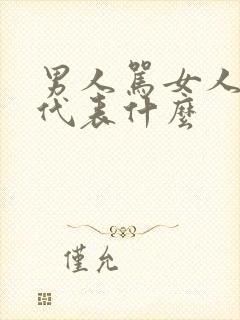 男人罵女人
代表什麼
僅允